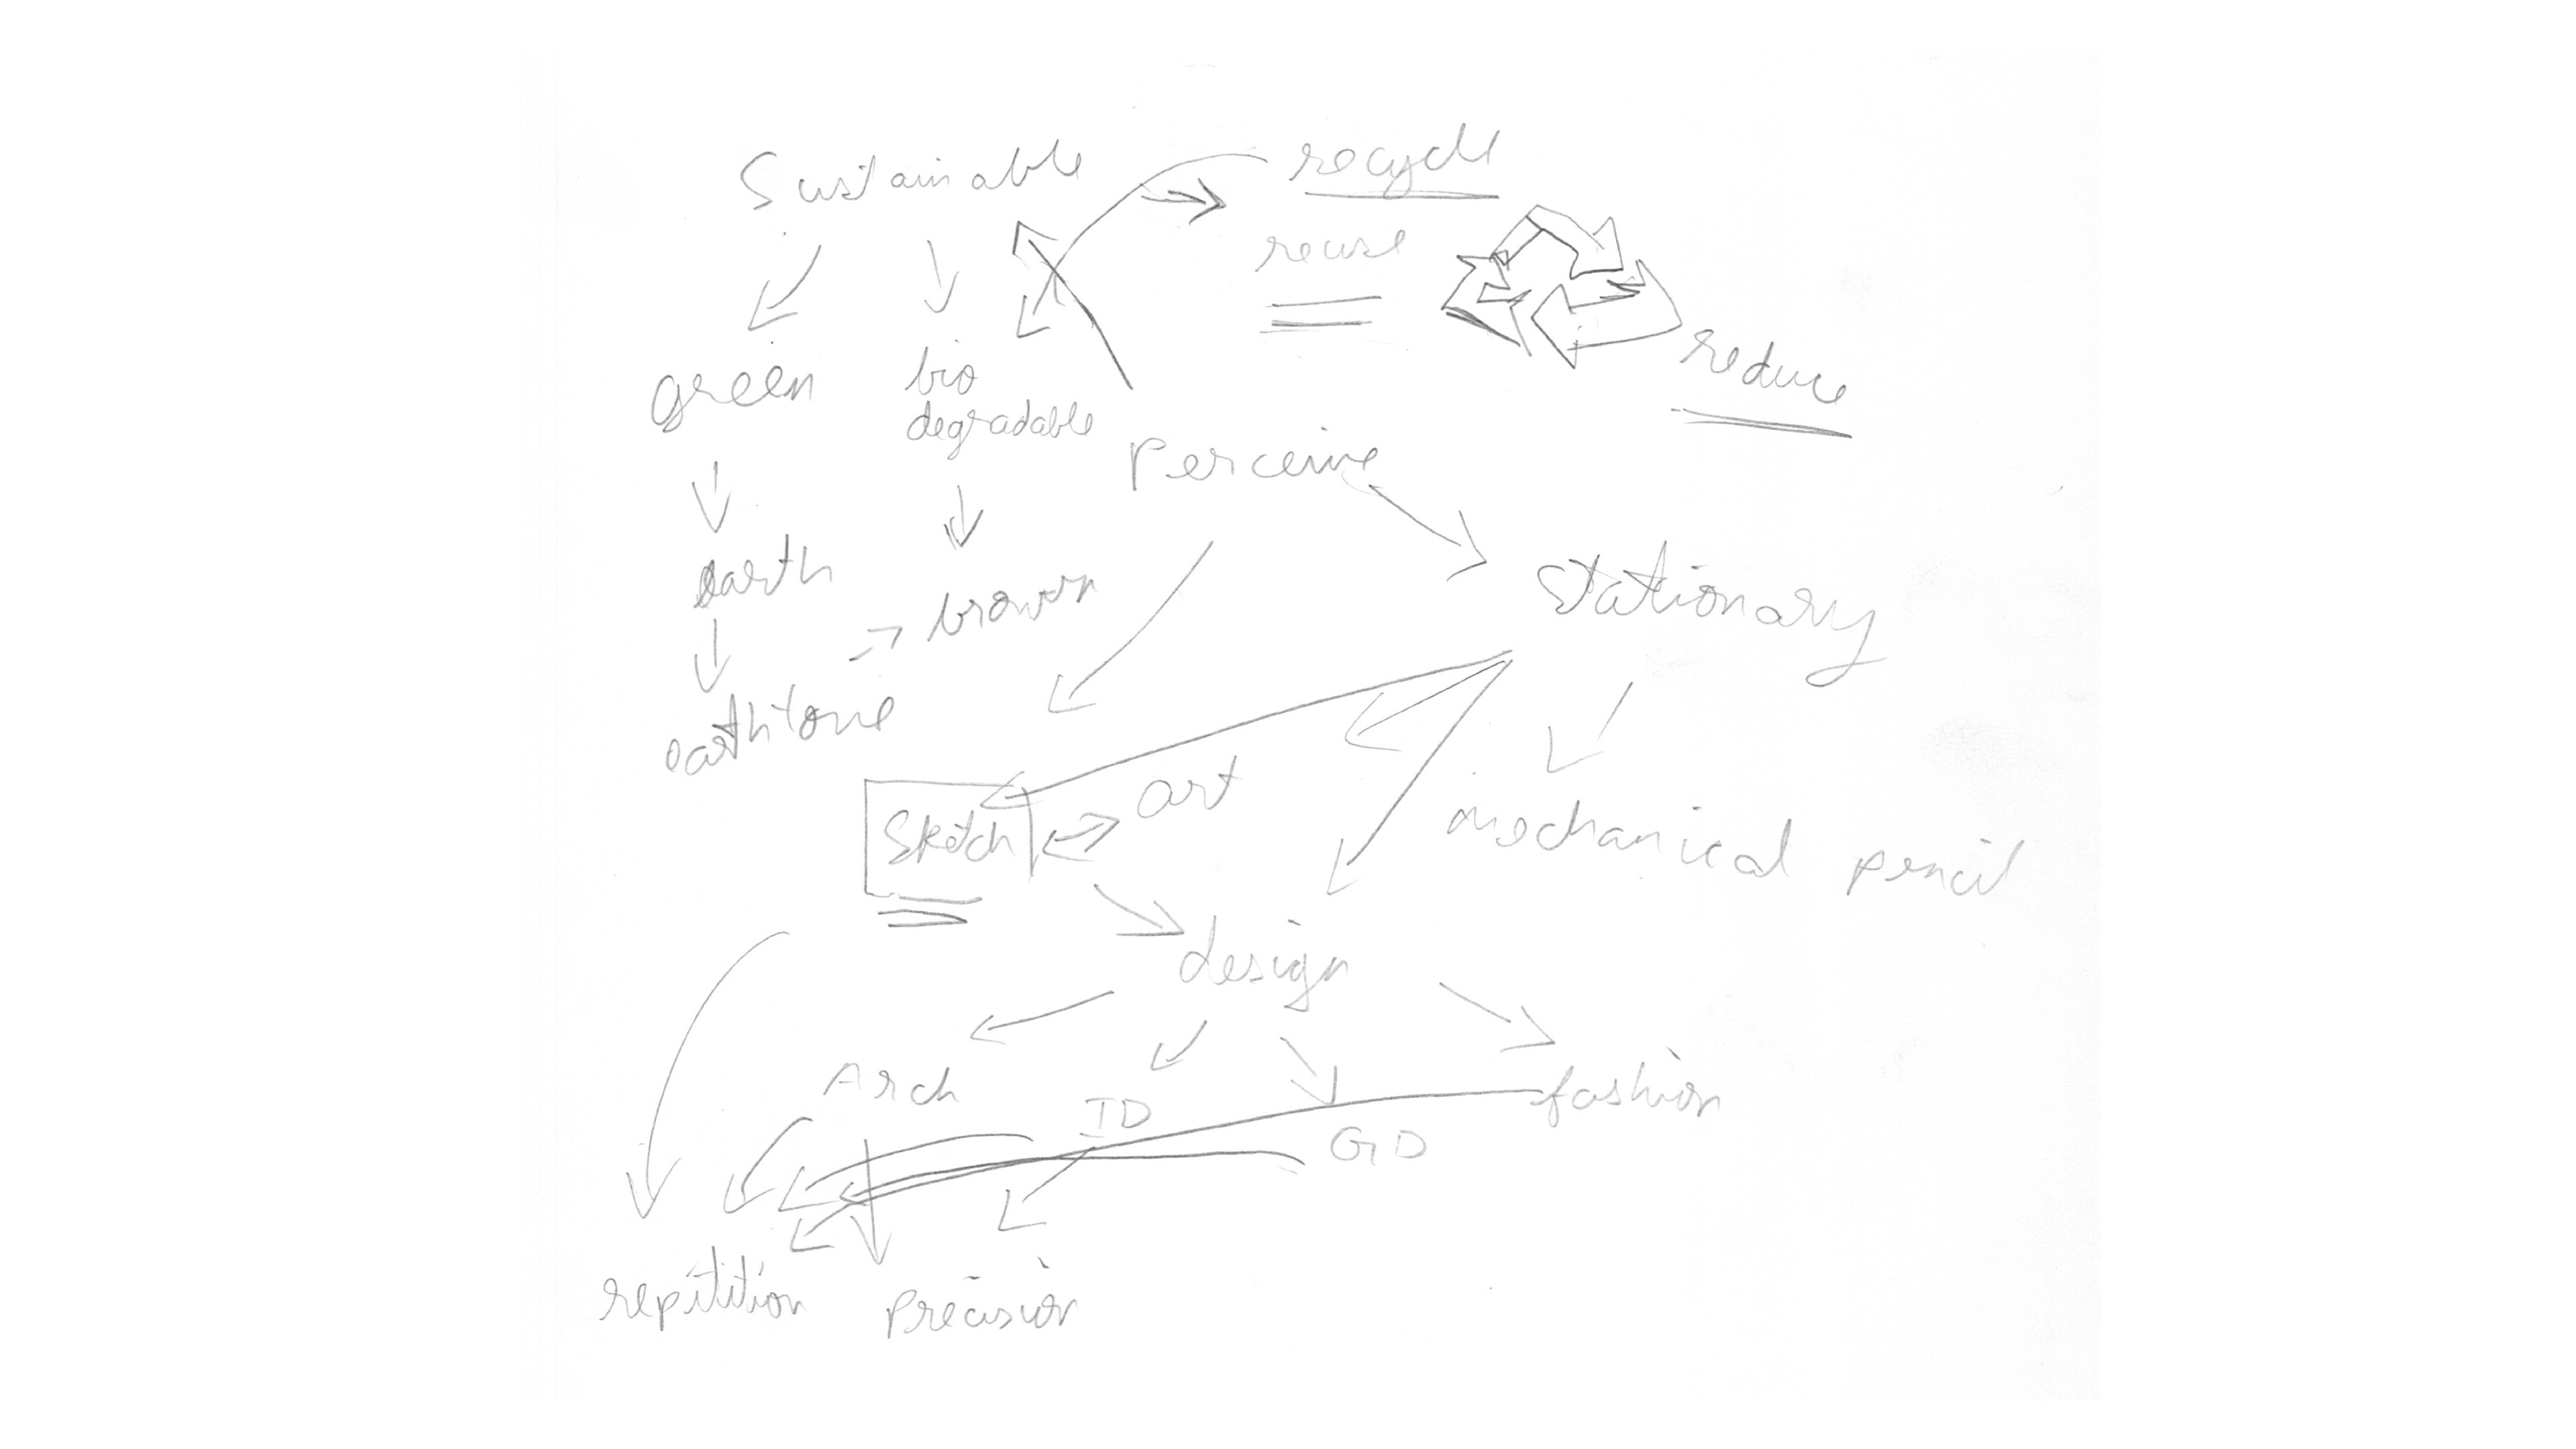 Sustainable
recycle
reuse
reduce
green
bio
degradable
Perceive
earth
brown
Stationary
earthtone
Sketch
art
mechanical pencil
design
Arch
ID
GD
fashion
repitition
Precision